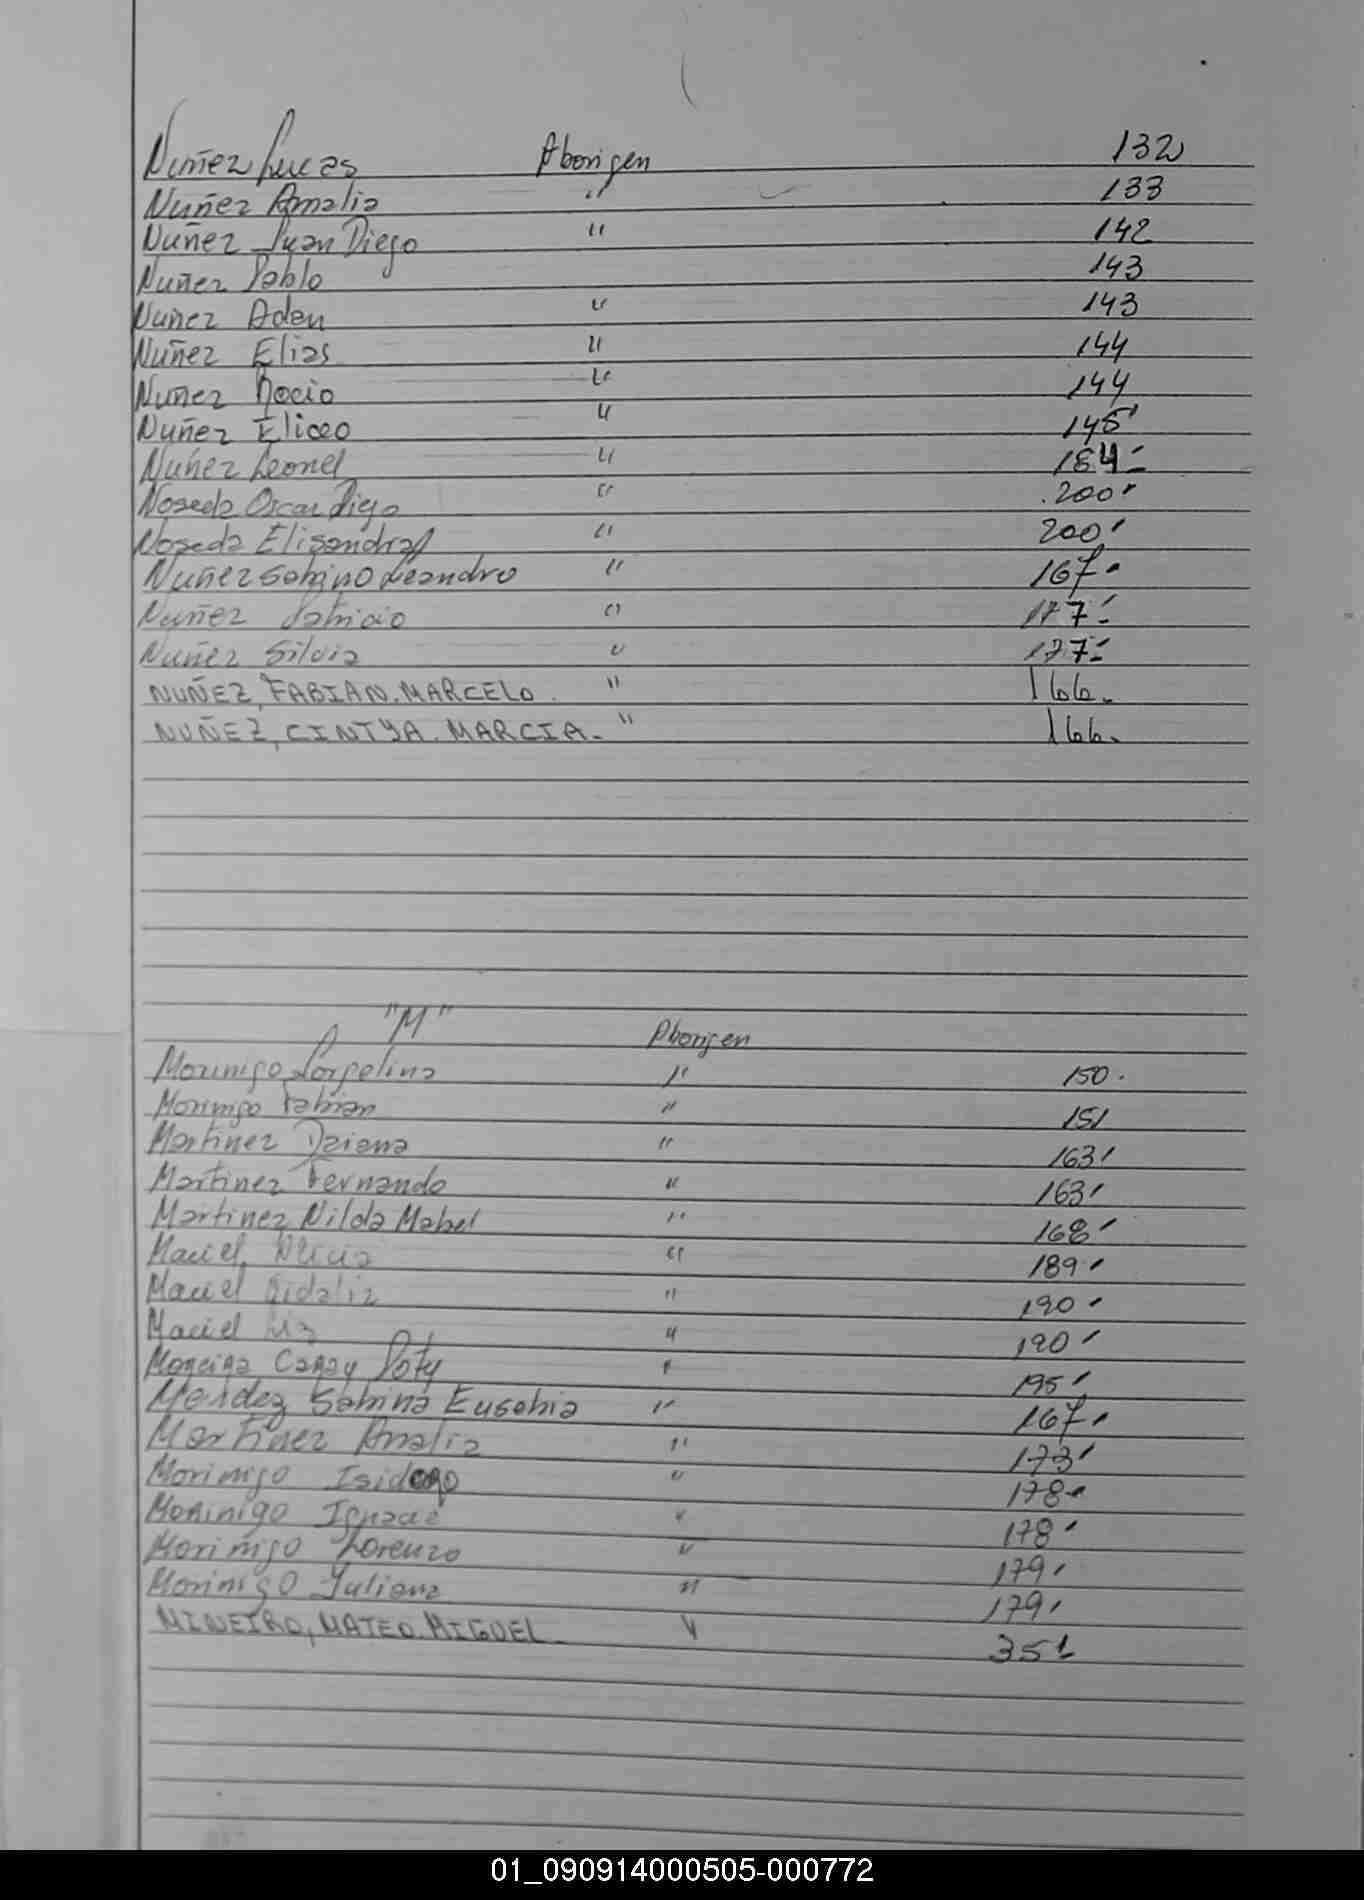 Nuñez Lucas Aborigen 132
Nuñez Amalia " 133
Nuñez Juan Diego " 142
Nuñez Pablo 143
Nuñez Adan " 143
Nuñez Elias " 144
Nuñez Rocio " 144
Nuñez Eliceo " 145'
Nuñez Leonel " 184-
Noseda Oscar Diego " 200'
Noseda Elisandra " 200'
Nuñez Sabino Leandro " 167-
Nuñez Patricio " 177-
Nuñez Silvia " 177-
NUÑEZ, FABIAN. MARCELO. " 166.
NUÑEZ, CINTYA. MARCIA. " 166.
"M" Aborigen
Morinigo " 150.
Morinigo Fabian " 151
Martinez Daiana " 163'
Martinez Fernando " 163'
Martinez Nilda Mabel " 168'
Maciel Alicia " 189'
Maciel " 190-
Maciel " 190'
Moreira Poty " 195'
Mendez Sabina Eusebia " 167-
Martinez Analia " 173'
Morinigo Isidoro " 178-
Morinigo " 178'
Morinigo Lorenzo " 179'
Morinigo Juliana " 179'
MINEIRO, MATEO. MIGUEL. " 351
01_090914000505-000772